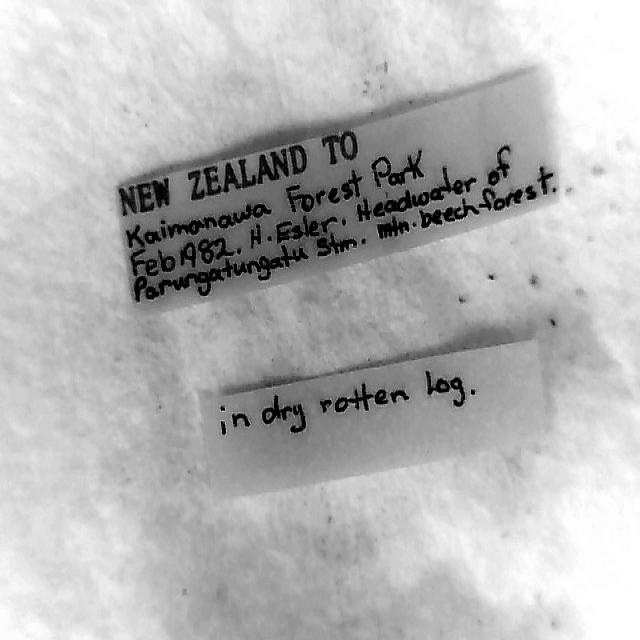 NEW ZEALAND TO
Kaimanawa Forest Park
Feb 1982. H. Esler. Headwater of
Parungatungatu Stm. mtn. beech forest.
in dry rotten log.